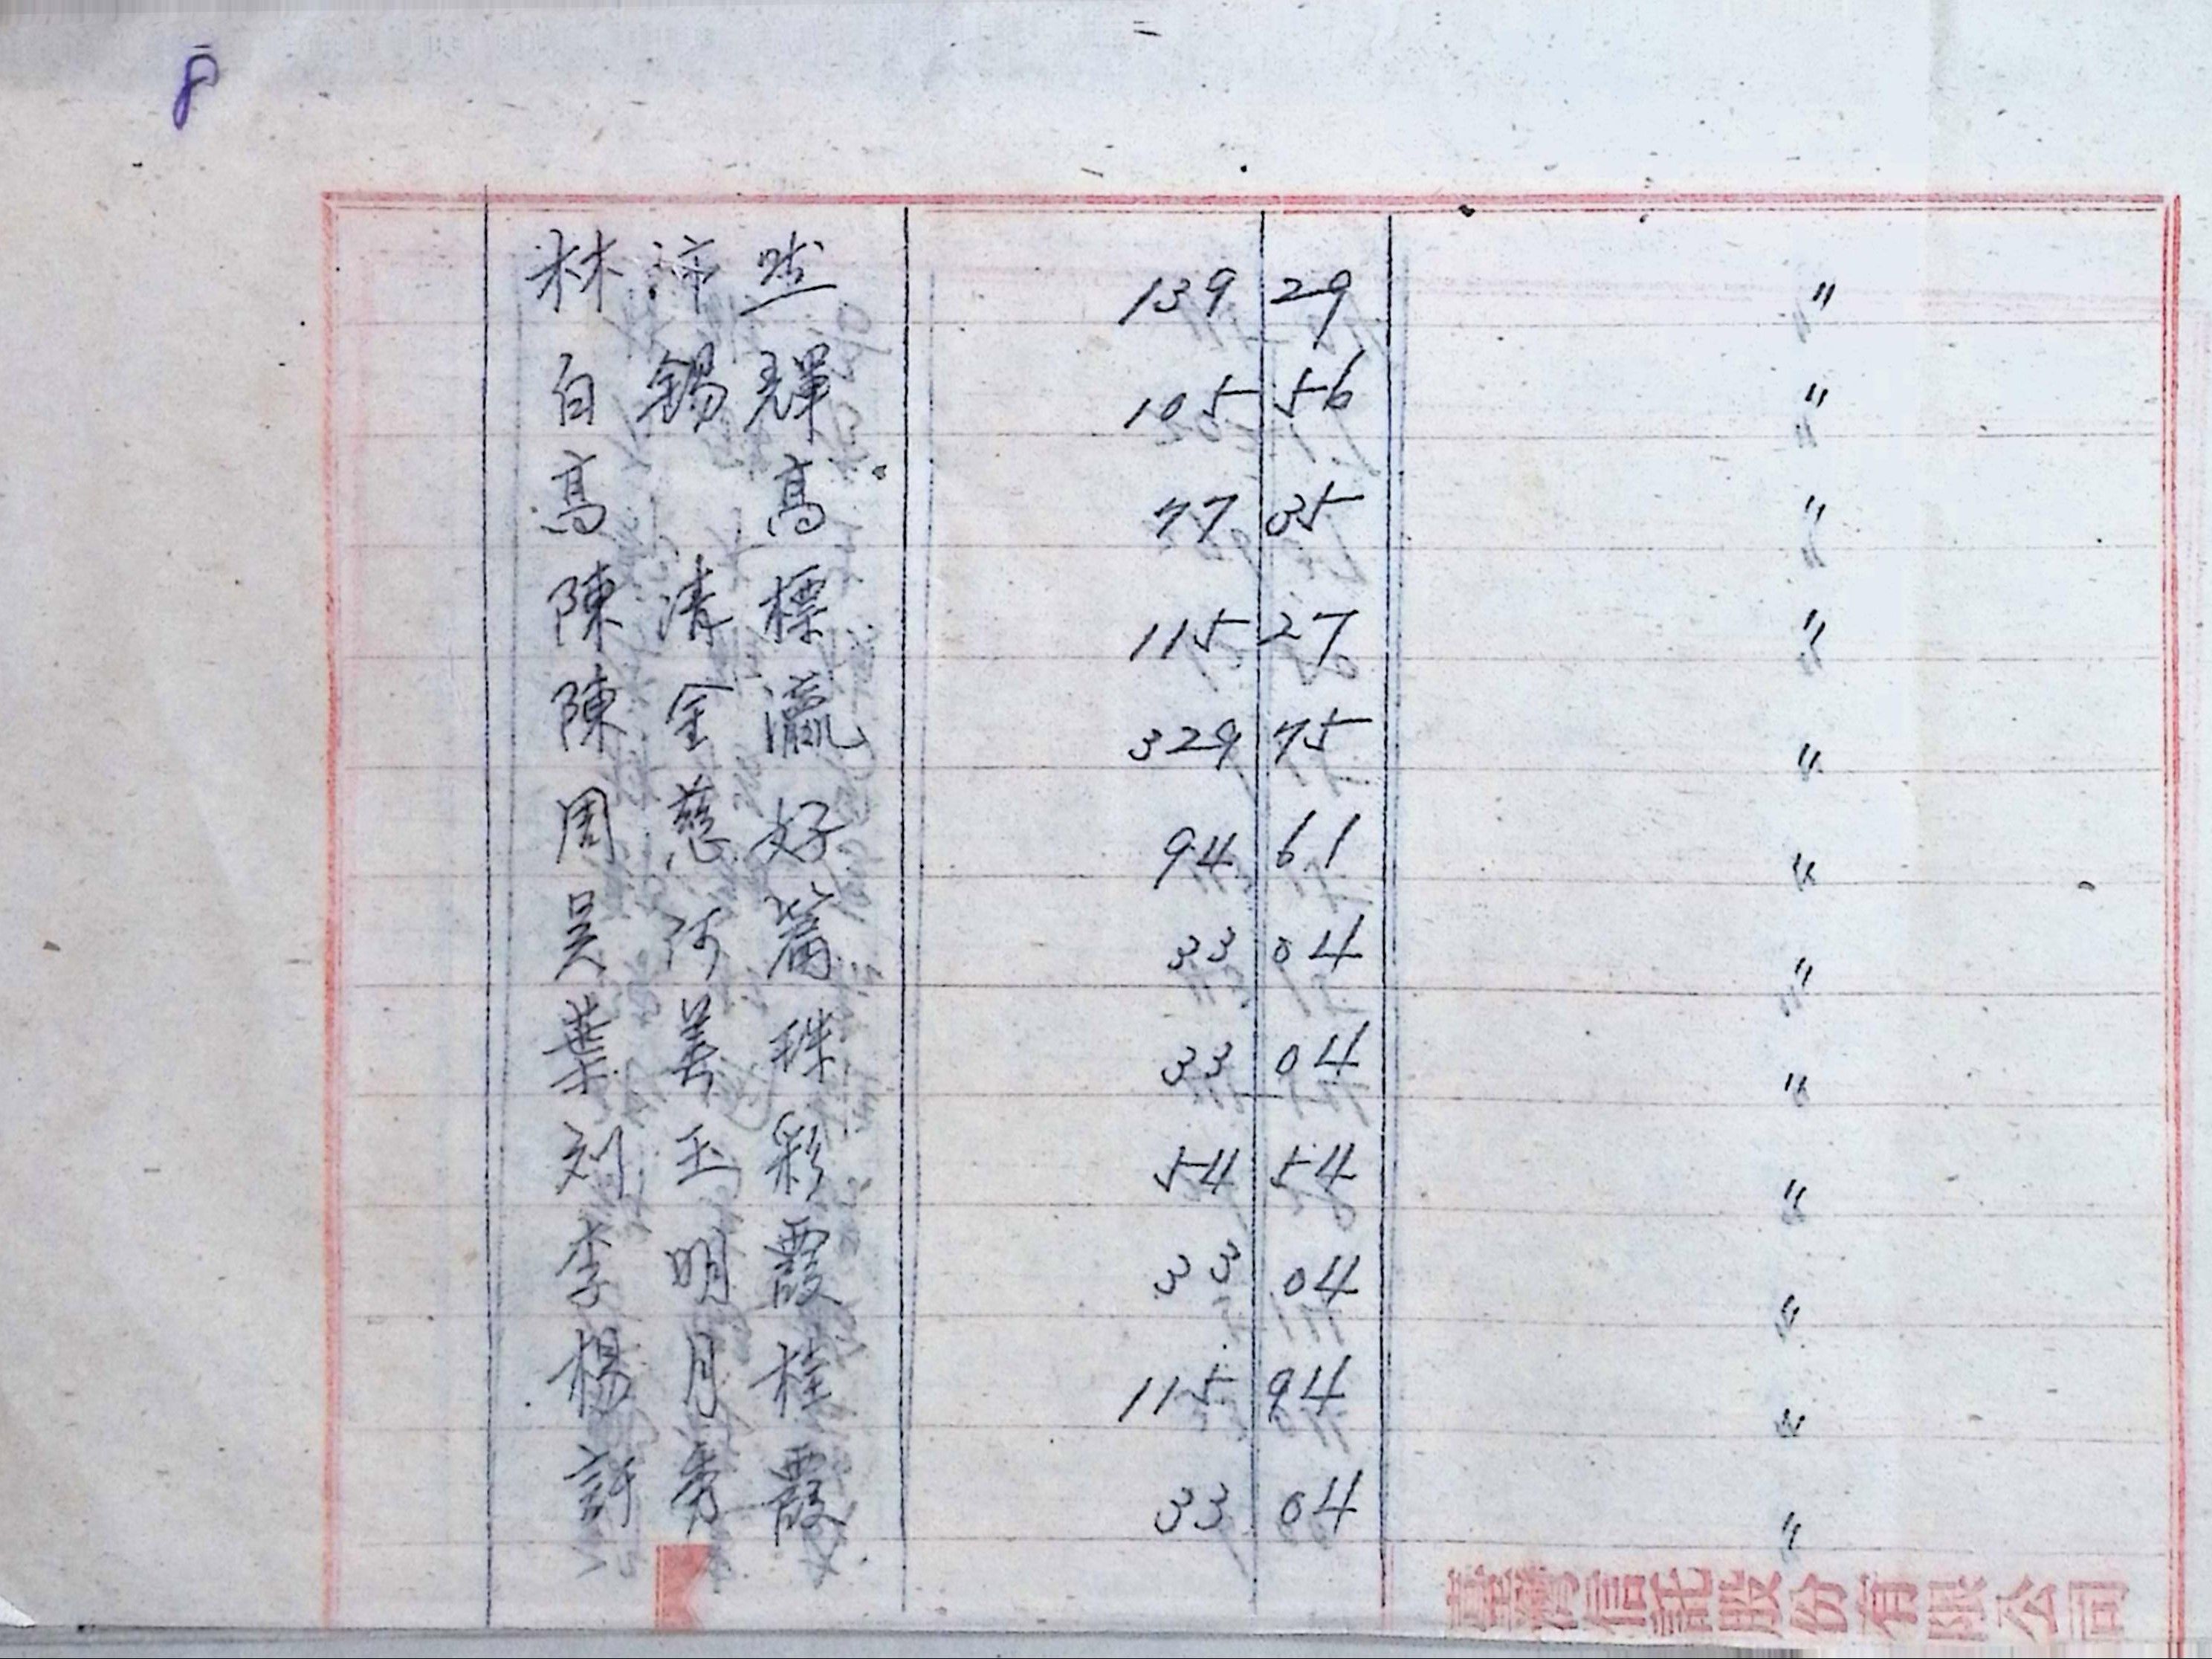 8
林沛然 139 29 〃
白錫輝 105 56 〃
高高 77 35 〃
陳清標 115 27 〃
陳金瀛 329 75 〃
周慈好 94 61 〃
吳阿 33 04 〃
葉美珠 33 04 〃
刘玉彩 54 54 〃
李明霞 33 04 〃
楊月桂 115 94 〃
許秀霞 33 04 〃
臺灣信託股份有限公司